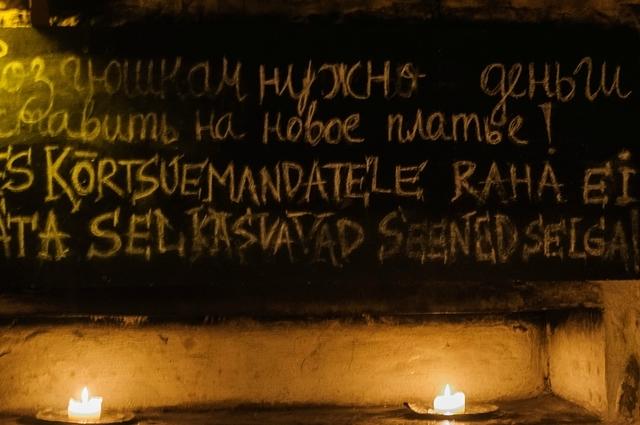 озяюшкам нужно деньги
ставить на новое платье!
ES KÕRTSUEMANDATELE RAHA EI
ÄTA SEL KASVAVAD SEENED SELGA